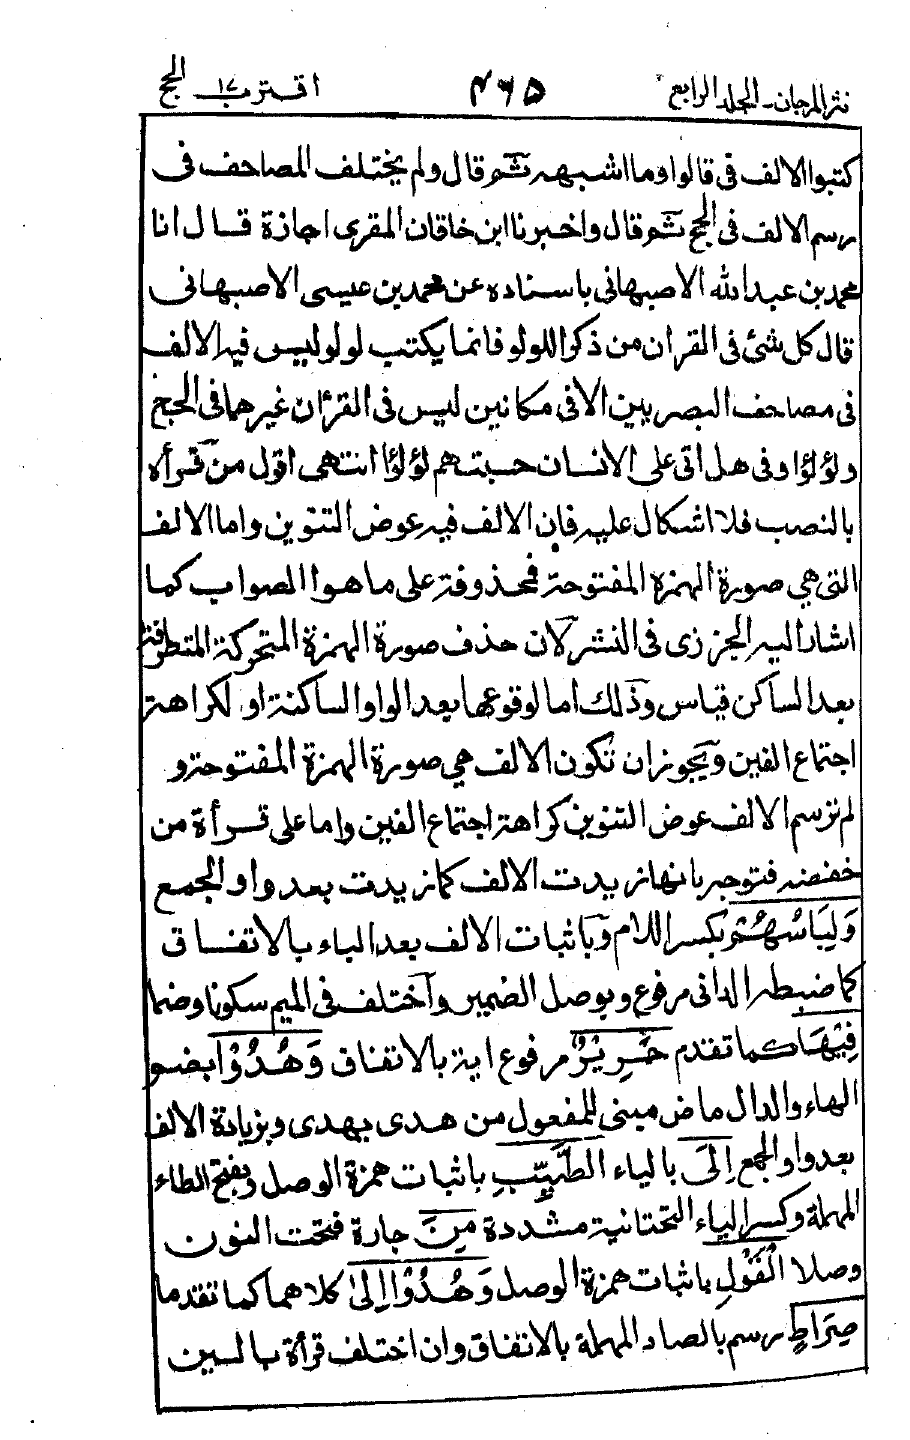 نثر المرجان ـ المجلد الرابع ۴۶۵ اقترب ١٧ الحج
كتبوا الالف فى قالوا وما اشبهه ثم قال ولم يختلف المصاحف فى
رسم الالف فى الحج ثم قال واخبرنا ابن خاقان المقرى اجازة قال انا
محمد بن عبد الله الاصبهانى باسناده عن محمد بن عيسى الاصبهانى
قال كل شئ فى القران من ذكر اللولو فانما يكتب لولو ليس فيه الالف
فى مصاحف البصريين الا فى مكانين ليس فى القران غيرهما فى الحج
ولؤلؤا وفى هل اتى على الانسان حسبتهم لؤلؤا انتهى اقول من قرأه
بالنصب فلا اشكال عليه فان الالف فيه عوض التنوين واما الالف
التى هى صورة الهمزة المفتوحة فمحذوفة على ما هو الصواب كما
اشار اليه الجزرى فى النشر لان حذف صورة الهمزة المتحركة المتطرفة
بعد الساكن قياس وذلك اما لوقوعها بعد الواو الساكنة او لكراهة
اجتماع الفين ويجوز ان تكون الالف هى صورة الهمزة المفتوحة و
لم ترسم الالف عوض التنوين كراهة اجتماع الفين واما على قرأة من
خفضه فتوجه بانها زيدت الالف كما زيدت بعد واو الجمع
وَلِبَاسُهُمْ بكسر اللام وباثبات الالف بعد الباء بالاتفاق
كما ضبطه الدانى مرفوع وبوصل الضمير واختلف فى الميم سكونا وضما
فِيْهَا كما تقدم حَرِيْرٌ مرفوع اية بالاتفاق وَهُدُوْا بضم
الهاء والدال ماض مبنى للمفعول من هدى يهدى وبزيادة الالف
بعد واو الجمع اِلَى بالياء الطَّيِّبِ باثبات همزة الوصل وبفتح الطاء
المهملة وكسر الياء التحتانية مشددة مِنَ جارة فتحت النون
وصلا الْقَوْلِ باثبات همزة الوصل وَهُدُوْا اِلىٰ كلاهما كما تقدما
صِرَاطِ رسم بالصاد المهملة بالاتفاق وان اختلف قرأة بالسين